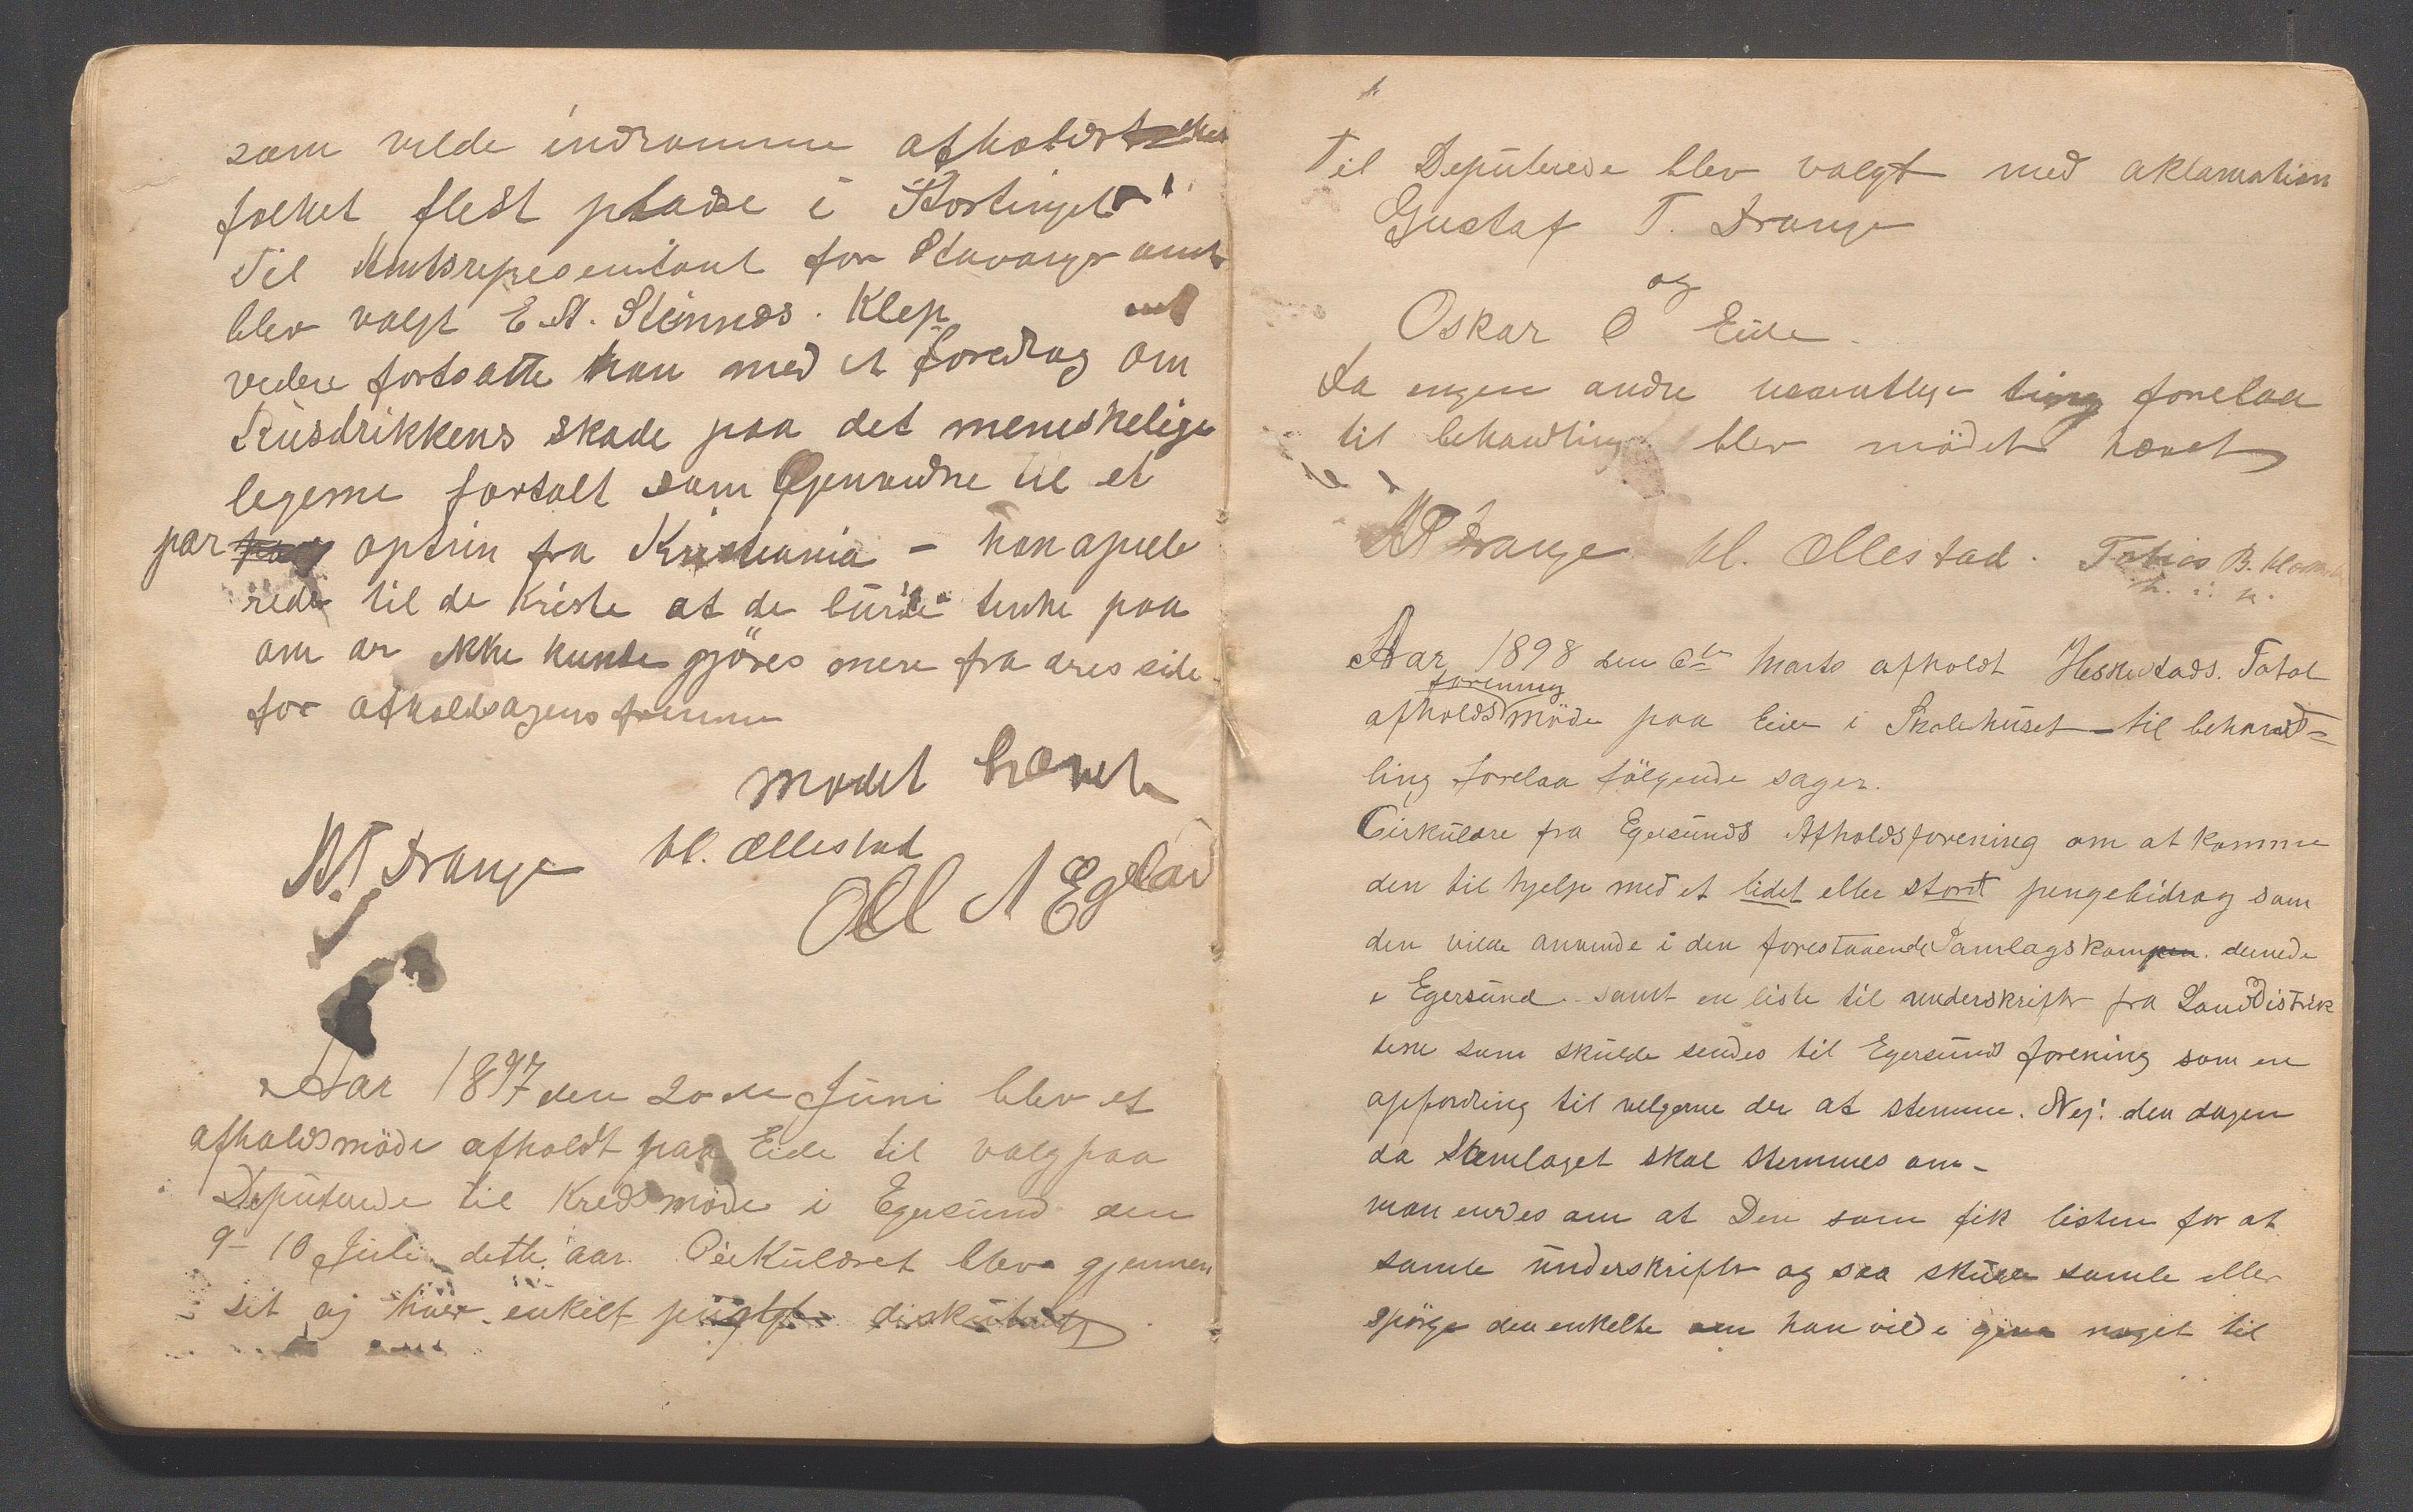 som vilde indrømme afholds
folket flest pladse i Stortinget
Til Amtsrepesentant for Stavanger amt
blev valgt E. A. Stennes. Klep
videre fortsatte han med et foredrag om
Rusdrikkens skade paa det meneskelige
legeme fortalt som Øjenvidne til et
par optrin fra Kristiania - han apele
rede til de Kriste at de burde tenke paa
om der ikke kunde gjöres mere fra deres side
for afholdsagens fremme
mødet hævet
N. T. Drange Vl. Ollestad
Aar 1897 den 20de Juni blev et
afholdsmöde afholdt paa Eide til valg paa
Deputerede til Kredsmöde i Egersund den
9-10 Juli dette aar. Cirkulæret blev gjennem
set og hver enkelt punkt diskuteret
Til Deputerede blev valgt med aklamation
Gustaf T. Drange
og
Oskar O Eide.
Da ingen andre vesentlige ting forelaa
til behandling blev mödet hævet
N T Drange Vl. Ollestad. Tobias B.
Aar 1898 den 6te Marts afholdt Heskestads. Total
forening
afholds möde paa Eide i Skolehuset - til behand=
ling forelaa fölgende sager.
Cirkulære fra Egersunds Afholdsforening om at komme
den til hjelp med et lidet eller stort pengebidrag som
den vilde anvende i den forestaaende Samlagskampen dernede
i Egersund samt en liste til underskrifter fra Landdistrik
terne som skulde sendes til Egersund forening som en
opfordring til velgerne der at stemme. Nej! den dagen
da Samlaget skal stemmes om -
man enedes om at Den som fik listen for at
samle underskrifter og saa skulde samle eller
spörge den enkelte om han vilde give noget til